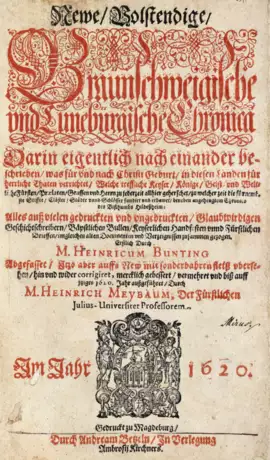 Newe/Volstendige/
Braunschweigische
und Lüneburgische Chronica
Darin eigentlich nach einander be-
schrieben/ was für und nach Christi Geburt/ in diesen Landen für
herrliche Thaten verrichtet/ Welche treffliche Keyser/ Könige/ Geist. und Welt-
Fürsten/ Prelaten/ Graffen und Herrn zu jederzeit allhier geherschet/ zu welcher zeit die
Stiffter/ Clöster/ Städte unnd Schlösser fundirt und erbawet/
Bischthumbs Hildesheim:
Alles auß vielen gedruckten und ungedruckten/ Glaubwirdigen
Geschichtschreibern/ Bäpstlichen Bullen/ Keyserlichen Handf:sten unnd Fürstlichen
Brieffen/ imgleichen alten Documenten und Verzeignissen zusammen gezogen.
Erstlich Durch
M. HEINRICUM BUNTING
Abgefasset/ Itzo aber auffs New mit sonderbahrem fleiß uberse-
hen/ hin und wider corrigiret/ mercklich gebessert/ vermehret und biß auff
itziges 1620. Jahr außgeführet/ Durch
M. HEINRICH MEYBAUM, Der Fürstlichen
Julius-Universitet Professorem.
Im Jahr 1620.
Gedruckt zu Magdeburg/
Durch Andream Betzeln/ In Verlegung
Ambrosij Kirchners.